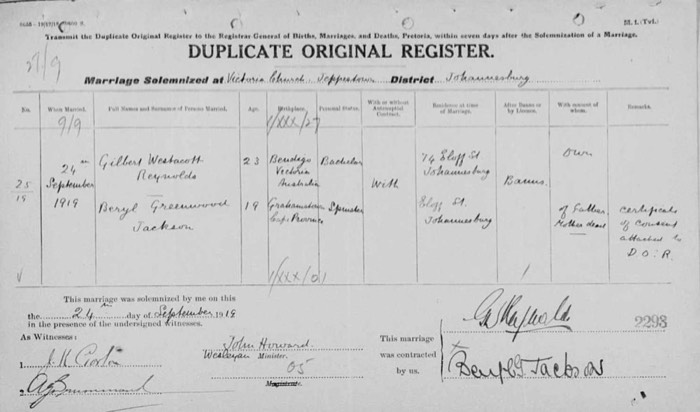 M. 1. (Tvl.)
Transmit the Duplicate Original Register to the Registrar General of Births, Marriages, and Deaths, Pretoria, within seven days after the Solemnization of a Marriage.
27/9
DUPLICATE ORIGINAL REGISTER.
Marriage Solemnized at Victoria Church Jeppestown District Johannesburg
No. When Married. Full Names and Surnames of Persons Married. Age. Birthplace. Personal Status. With or without Antenuptial Contract. Residence at time of Marriage. After Banns or by Licence. With consent of whom. Remarks.
9/9
24th Gilbert Westacott 23 Bendigo Bachelor 74 Eloff St Own
September Reynolds Victoria Johannesburg
25 Australia With Banns.
19 1919 Beryl Greenwood 19 Grahamstown Spinster Eloff St. of Father certificate
Jackson Cape Province Johannesburg Mother dead of consent
attached to
D.O.R.
This marriage was solemnized by me on this
the 24th day of September 1919
in the presence of the undersigned witnesses.
As Witnesses:
John Howard
Wesleyan Minister.
Magistrate.
1.
This marriage
was contracted
by us.
2293
Beryl G Jackson